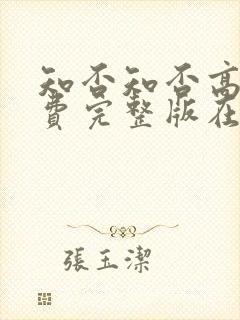 知否知否高
费完整版在
張玉潔